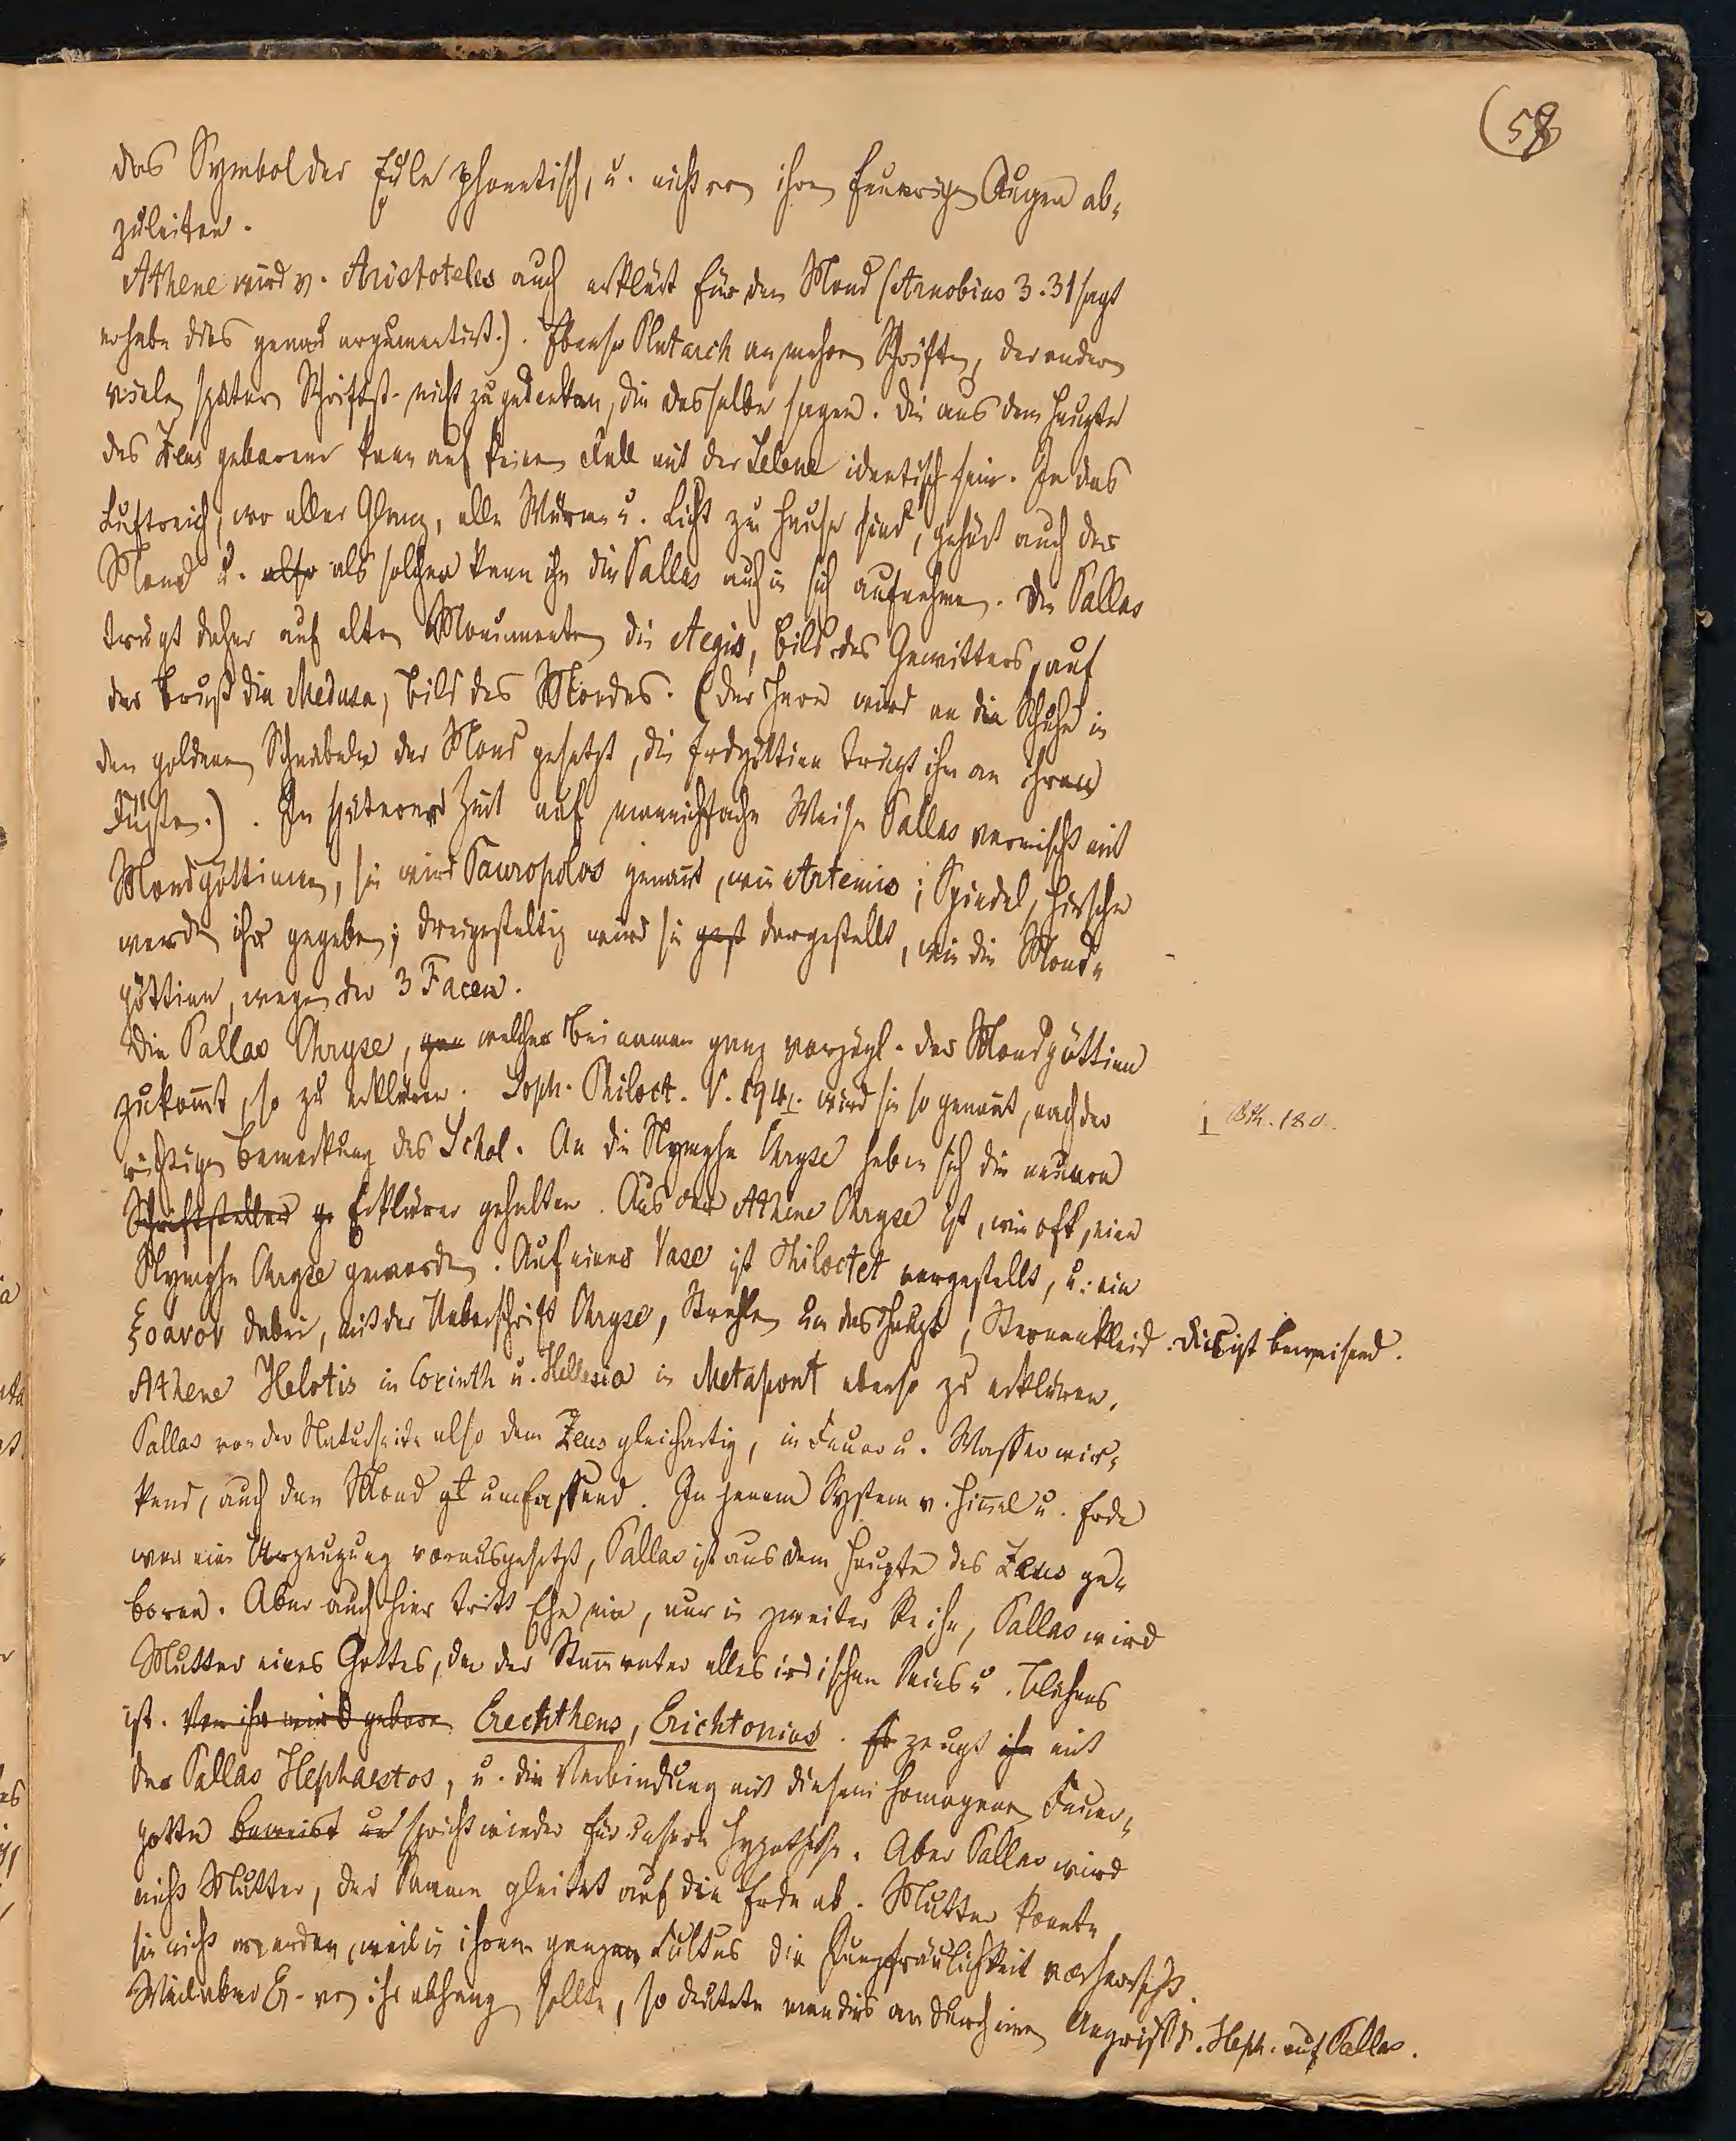 (58
das Symbol der Eule phonetisch, u. nicht von ihren feurigen Augen ab-
zuleiten.
Athene wird v. Aristoteles auch erklärt für den Mond (Arnobius 3.31 sagt
er habe dies genau argumentirt.). Ebenso Plutarch an mehren Schriften, der andern
vielen spätern Schriftst. nicht zu gedenken, die dasselbe sagen. Die aus dem Haupte
des Zeus geborene kann auf keinen Fall mit der Selene identisch sein. In das
Luftreich, wo aller Glanz, alle Wärme u. Licht zu Hause sind, gehört auch der
Mond u. also als solchen kann ihn die Pallas auch in sich aufnehmen. Die Pallas
trägt daher auf alten Monumenten die Aegis, Bild des Gewitters, auf
der Brust die Medusa, Bild des Mondes. (Der Here wird an die Schuhe in
den goldenen Schnabeln der Mond gesetzt, die Erdgöttinn trägt ihn an ihren
Füßen.). In späterer Zeit auf mannichfache Weise Pallas vermischt mit
Mondgöttinnen, sie wird Tauropolos genannt, wie Artemis; Spindel, Hirsche
werden ihr gegeben; dreigestaltig wird sie gest dargestellt, wie die Mond-
göttinn, wegen der 3 Facen.
Die Pallas Chryse, gan welcher Beinamen ganz vorzügl. der Mondgöttinn
zukommt, so zu erklären. Soph. Philoct. V. 194. wird sie so genannt, nach der
richtigen Bemerkung des Schol. An die Nymphe Chryse haben sich die neuern
Schriftsteller ge Erklärer gehalten. Aus der Athene Chryse ist, wie oft, eine
Nymphe Chryse geworden. Auf einer Vase ist Philoctet vorgestellt, u. ein
ξοανον dabei, mit der Ueberschrift Chryse, Strahlen um das Haupt, Sternenkleid. Dies ist beweisend.
Athene Helotis in Corinth u. Hellesia in Metapont ebenso zu erklären.
Pallas von der Naturseite also dem Zeus gleichartig, in Feuer u. Wasser wir-
kend, auch den Mond gt umfassend. In jenem System v. Himmel u. Erde
war eine Urzeugung vorausgesetzt, Pallas ist aus dem Haupte des Zeus ge-
boren. Aber auch hier tritt Ehe ein, nur in zweiter Reihe, Pallas wird
Mutter eines Gottes, der der Stammvater alles irdischen Seins u. Blühens
ist. Von ihr wird geboren Erechtheus, Erichtonius. Er zeugt ihn mit
der Pallas Hephaestos, u. die Verbindung mit diesem homogenen Feuer-
gotte beweist un spricht wieder für unsere Hypothese. Aber Pallas wird
nicht Mutter, der Samen gleitet auf die Erde ab. Mutter konnte
sie nicht werden, weil in ihrem ganzen Cultus die Jungfräulichkeit vorherrscht.
Weil aber E. von ihr abhangen sollte, so deutete man dies an durch einen Angriff d. Heph. auf Pallas.
180.